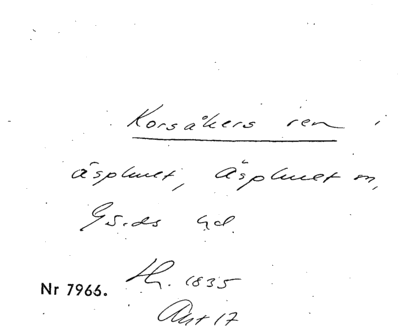 Korsåkers ren i
Äsphult, Äsphult sn,
Gärds hd.
Nr 7966. Th. 1835
Akt 17